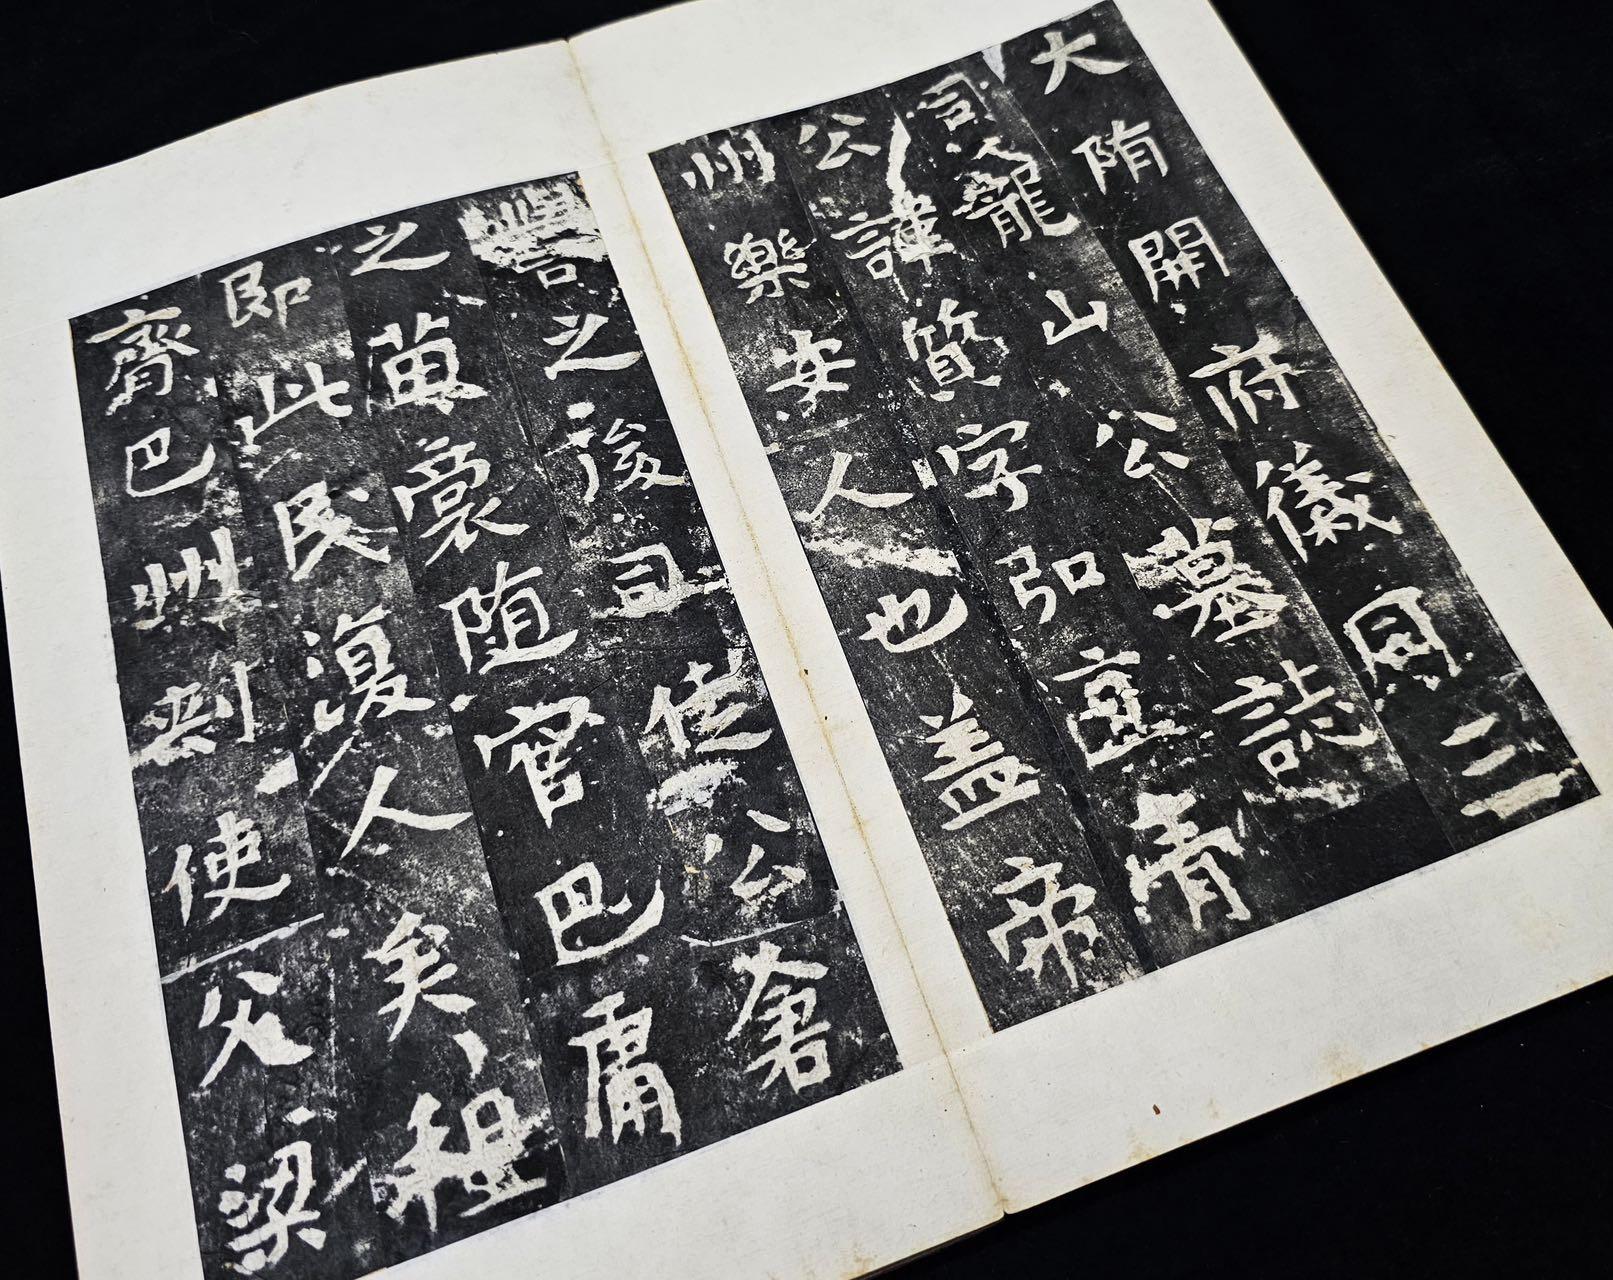 大隋開府儀同三
司龍山公墓誌
公諱質字弘直青
州樂安人也蓋帝
嚳之後司徒公倉
之苗裔随官巴庸
即此民復人矣祖
齊巴州刾使父梁